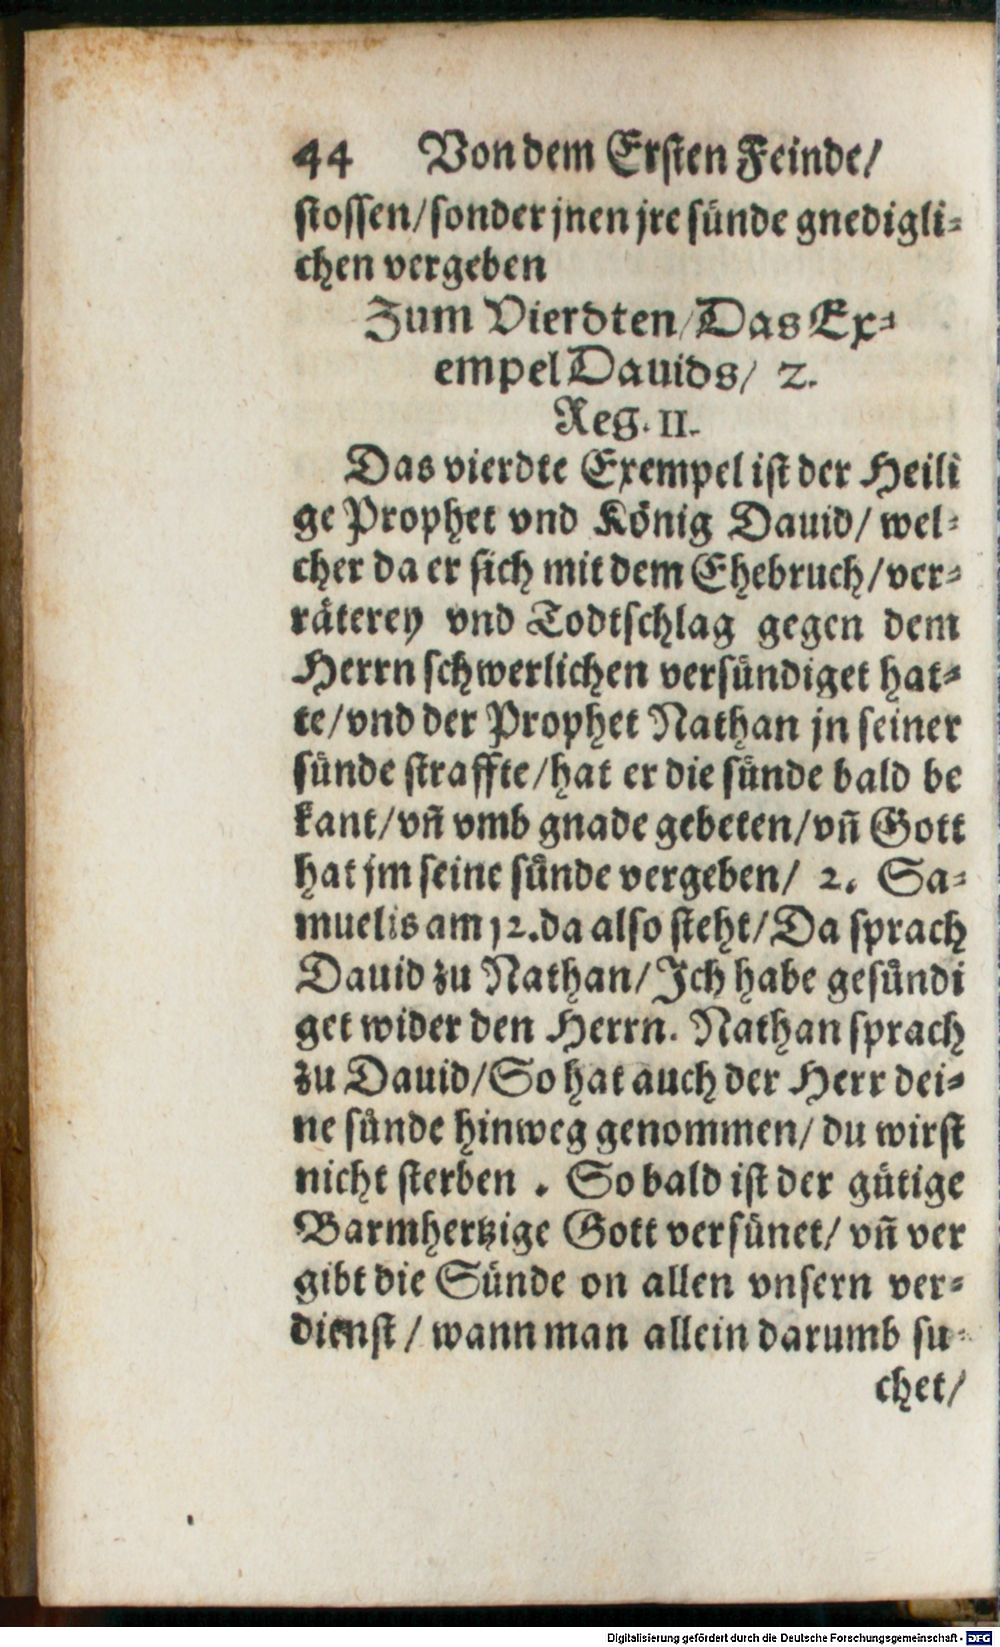 44 Von dem Ersten Feinde/
stossen/sonder jnen jre sünde gnedigli-
chen vergeben
Zum Vierdten/Das Ex-
empel Dauids/ 2.
Reg. II.
Das vierdte Exempel ist der Heili
ge Prophet vnd König Dauid/ wel-
cher da er sich mit dem Ehebruch/ver-
räterey vnd Todtschlag gegen dem
Herrn schwerlichen versündiget hat-
te/vnd der Prophet Nathan jn seiner
sünde straffte/hat er die sünde bald be
kant/vñ vmb gnade gebeten/vñ Gott
hat jm seine sünde vergeben/ 2. Sa-
muelis am 12.da also steht/Da sprach
Dauid zu Nathan/Ich habe gesündi
get wider den Herrn. Nathan sprach
zu Dauid/So hat auch der Herr dei-
ne sünde hinweg genommen/ du wirst
nicht sterben . So bald ist der gütige
Barmhertzige Gott versünet/ vñ ver
gibt die Sünde on allen vnsern ver-
dienst / wann man allein darumb su-
chet/
Digitalisierung gefördert durch die Deutsche Forschungsgemeinschaft - DFG